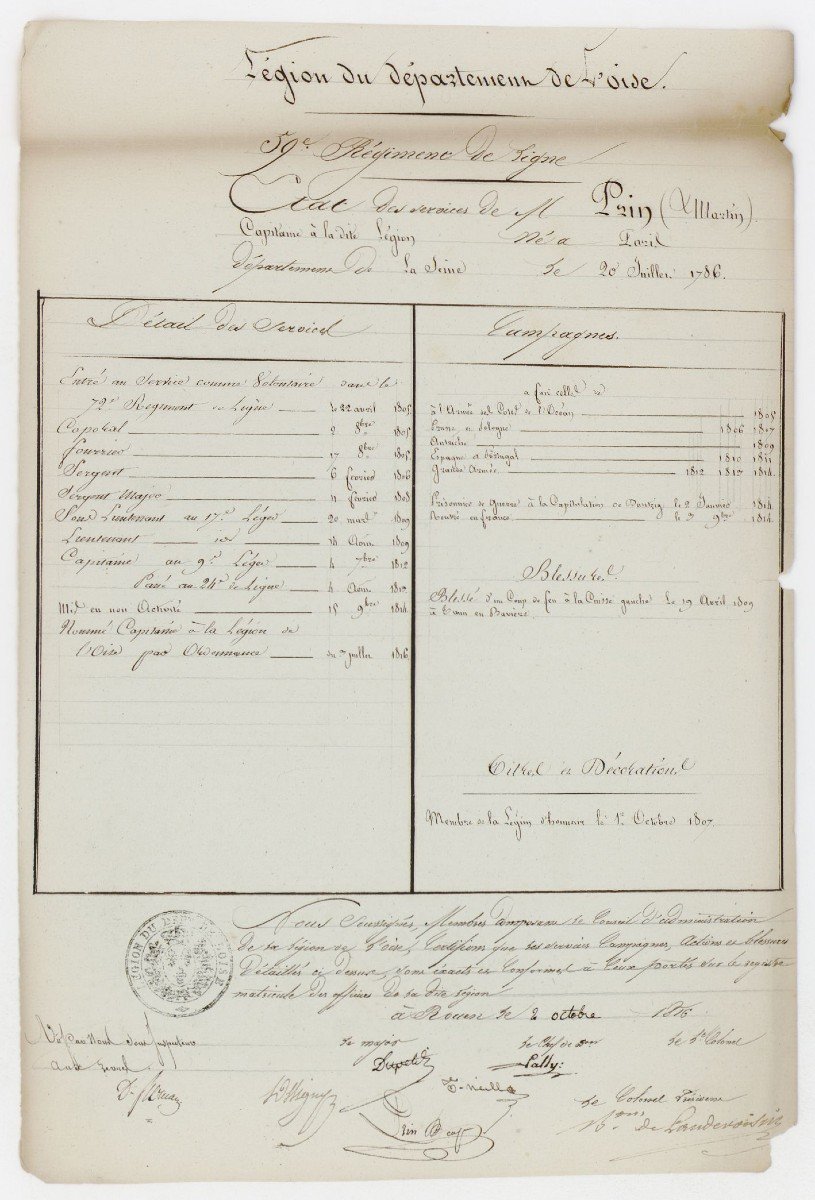 Légion du département de L'oise.
59e Régiment de Ligne
Etat des services de M Prin (Martin).
Capitaine à la dite Légion Né a Paris
département de La Seine le 20 Juillet 1786.
Détail des Services
Entré au Service comme Volontaire dans le
72e Regiment de Ligne le 22 avril 1805
Caporal 2 8bre 1805
fourrier 17 8bre 1805
Sergent 6 fevrier 1806
Sergent Major 11 fevrier 1808
Sous Lieutenant au 17e Léger 20 mars 1809
Lieutenant id 18 Aout 1809
Capitaine au 9e Léger 4 7bre 1812
Passé au 24e de Ligne 4 Aout 1813
Mis en non Activité 15 9bre 1814
Nommé Capitaine à la Légion de
l'Oise par Ordonnance du juillet 1816
Campagnes.
a fait celles de
à l'Armée des Cotes de l'Océan 1805
Prusse et Pologne 1806 1807
Autriche 1809
Espagne et Portugal 1810 1811
Grande Armée 1812 1813 1814
Prisonnier de Guerre à la Capitulation de Dantzig le 2 Janvier 1814
Rentré en France le 3 9bre 1814
Blessures
Blessé d'un Coup de feu à la Cuisse gauche le 19 Avril 1809
à en Bavière
Titres et Décorations
Membre de la Légion d'honneur le 1er Octobre 1807
Nous Soussignés, Membres Composant le Conseil d'administration
de la légion de l'Oise, Certifions que les services Campagnes, Actions et blessures
Détaillés ci dessus, sont exacts et Conformes à Ceux portés sur le registre
matricule des officiers de la dite légion
à Rouen le 2 octobre 1816
LÉGION DU DÉPT DE L'OISE
Vu par Nous Sous Inspecteur
aux revues
le major le Chef de Bon le Lt Colonel
Lally
Prin Cap
Le Colonel
de Landevoisin